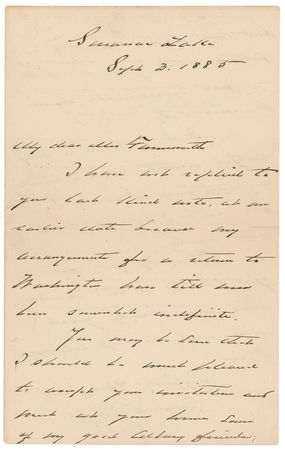 Saranac Lake
Sept 3. 1885
My dear Miss Farnsworth
I have not replied to
your last kind note, at an
earlier date because my
arrangements for a return to
Washington have till now
been somewhat indefinite.
You may be sure that
I should be much pleased
to accept your invitation and
meet at your house some
of my good Albany friends;